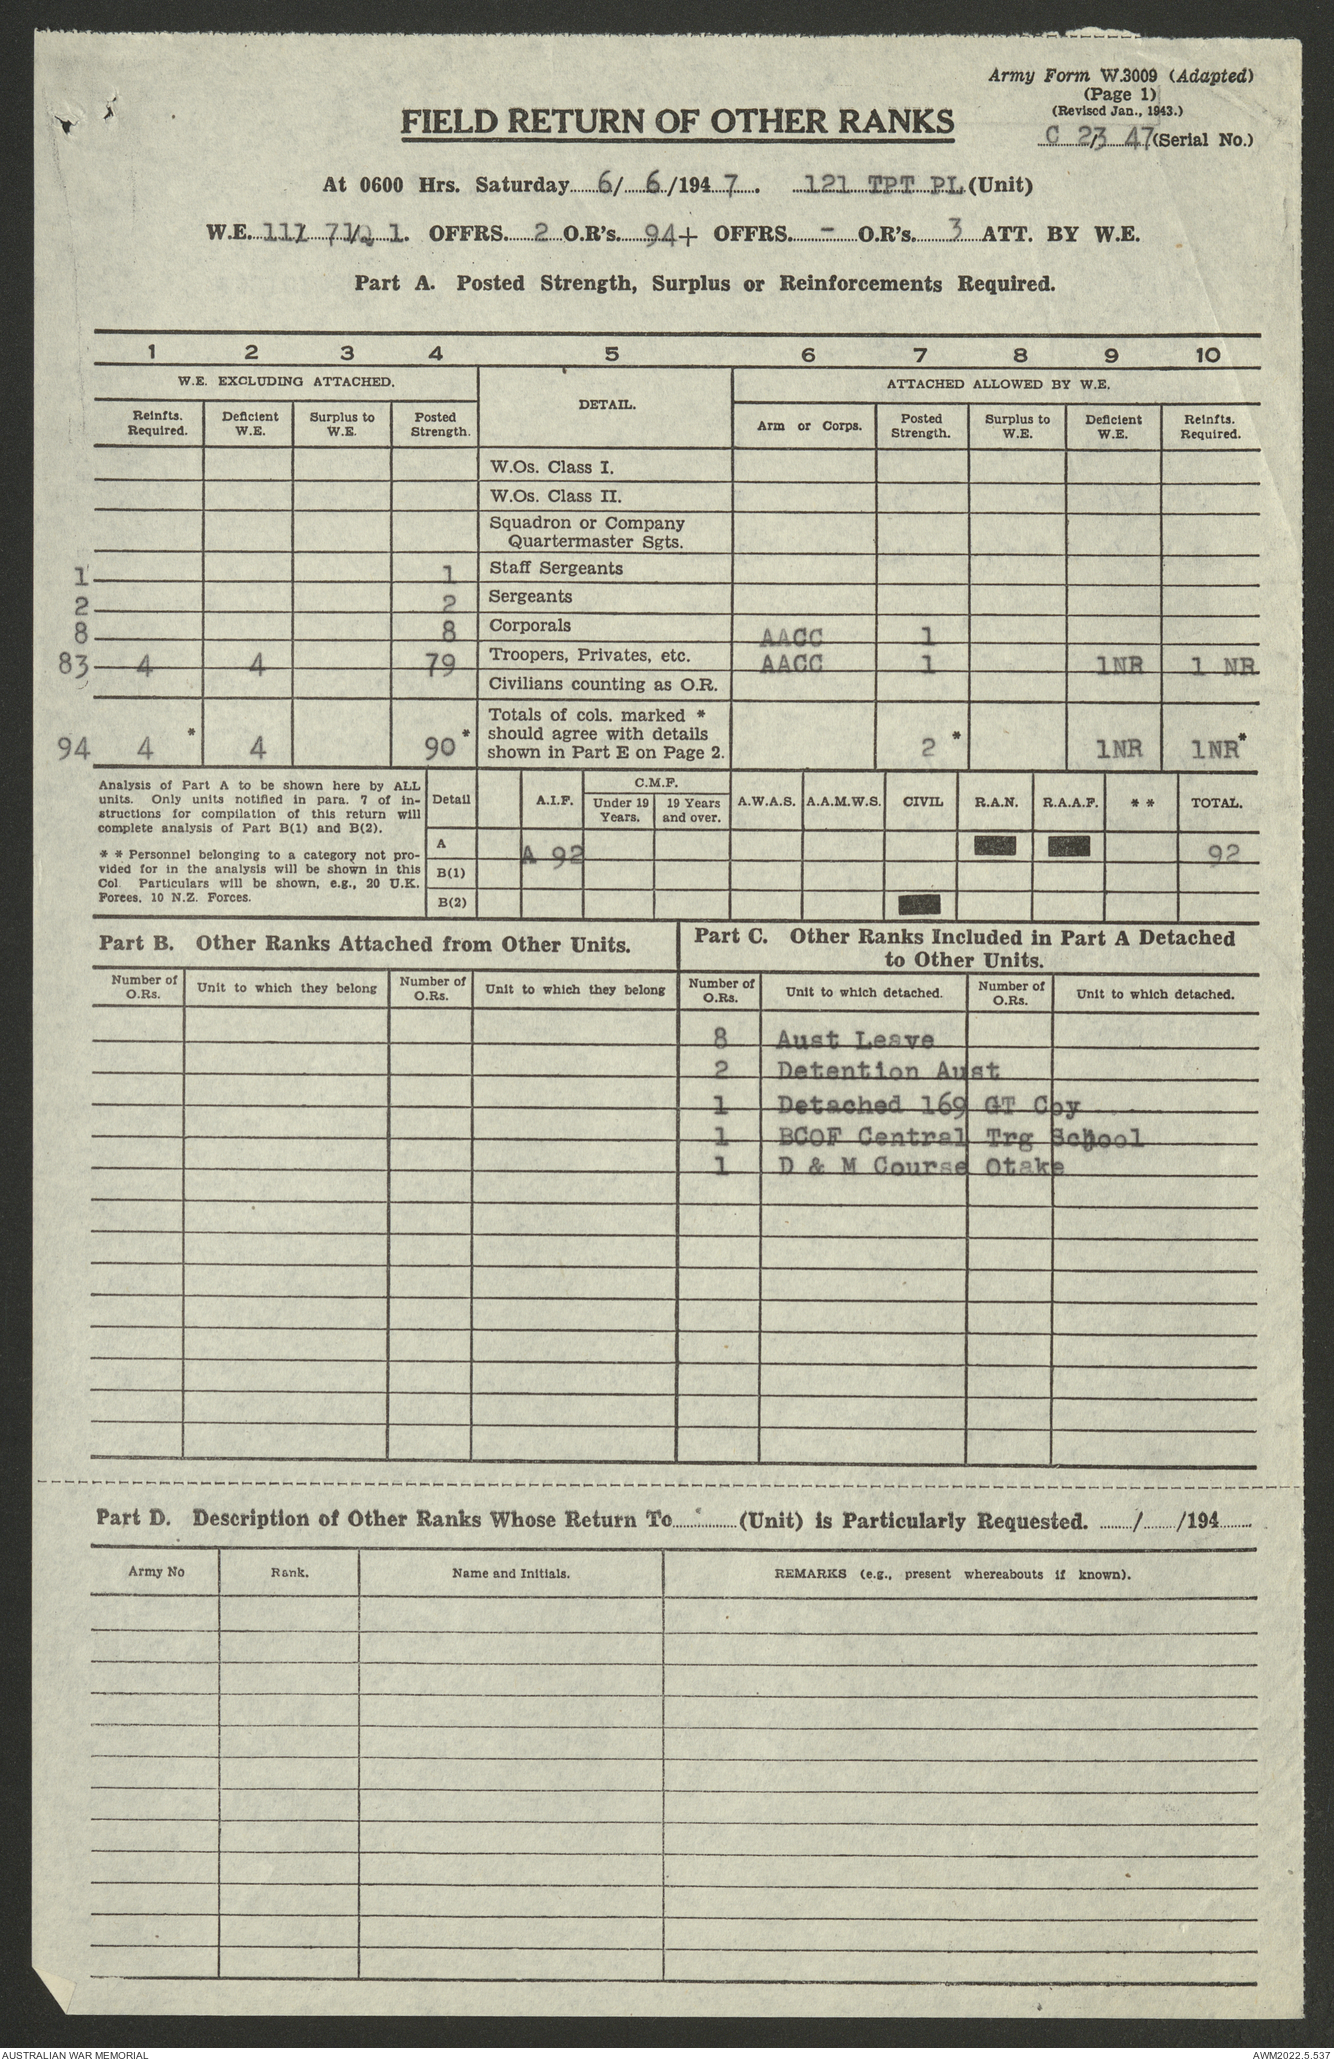 Army Form W.3009 (Adapted)
(Page 1)
(Revised Jan., 1943.)
C 23 47 (Serial No.)
FIELD RETURN OF OTHER RANKS
At 0600 Hrs. Saturday 6/ 6/1947. 121 TPT PL (Unit)
W.E. 111/ 71/Q 1. OFFRS. 2 O.R's. 94+ OFFRS. - O.R's. 3 ATT. BY W.E.
Part A. Posted Strength, Surplus or Reinforcements Required.
1 2 3 4 5 6 7 8 9 10
W.E. EXCLUDING ATTACHED. DETAIL. ATTACHED ALLOWED BY W.E.
Reinfts. Required. Deficient W.E. Surplus to W.E. Posted Strength. Arm or Corps. Posted Strength. Surplus to W.E. Deficient W.E. Reinfts. Required.
W.Os. Class I.
W.Os. Class II.
Squadron or Company
Quartermaster Sgts.
1 1 Staff Sergeants
2 2 Sergeants
8 8 Corporals AACC 1
83 4 4 79 Troopers, Privates, etc. AACC 1 1NR 1 NR
Civilians counting as O.R.
Totals of cols. marked *
should agree with details
shown in Part E on Page 2.
94 4 * 4 90 * 2 * 1NR 1NR *
Analysis of Part A to be shown here by ALL
units. Only units notified in para. 7 of in-
structions for compilation of this return will
complete analysis of Part B(1) and B(2).
* * Personnel belonging to a category not pro-
vided for in the analysis will be shown in this
Col. Particulars will be shown, e.g., 20 U.K.
Forces, 10 N.Z. Forces.
Detail A.I.F. C.M.F. Under 19 Years. 19 Years and over. A.W.A.S. A.A.M.W.S. CIVIL R.A.N. R.A.A.F. * * TOTAL.
A A 92 92
B(1)
B(2)
Part B. Other Ranks Attached from Other Units.
Number of O.Rs. Unit to which they belong Number of O.Rs. Unit to which they belong
Part C. Other Ranks Included in Part A Detached
to Other Units.
Number of O.Rs. Unit to which detached. Number of O.Rs. Unit to which detached.
8 Aust Leave
2 Detention Aust
1 Detached 169 GT Coy
1 BCOF Central Trg School
1 D & M Course Otake
Part D. Description of Other Ranks Whose Return To (Unit) is Particularly Requested. / /194
Army No Rank. Name and Initials. REMARKS (e.g., present whereabouts if known).
AUSTRALIAN WAR MEMORIAL AWM2022.5.537